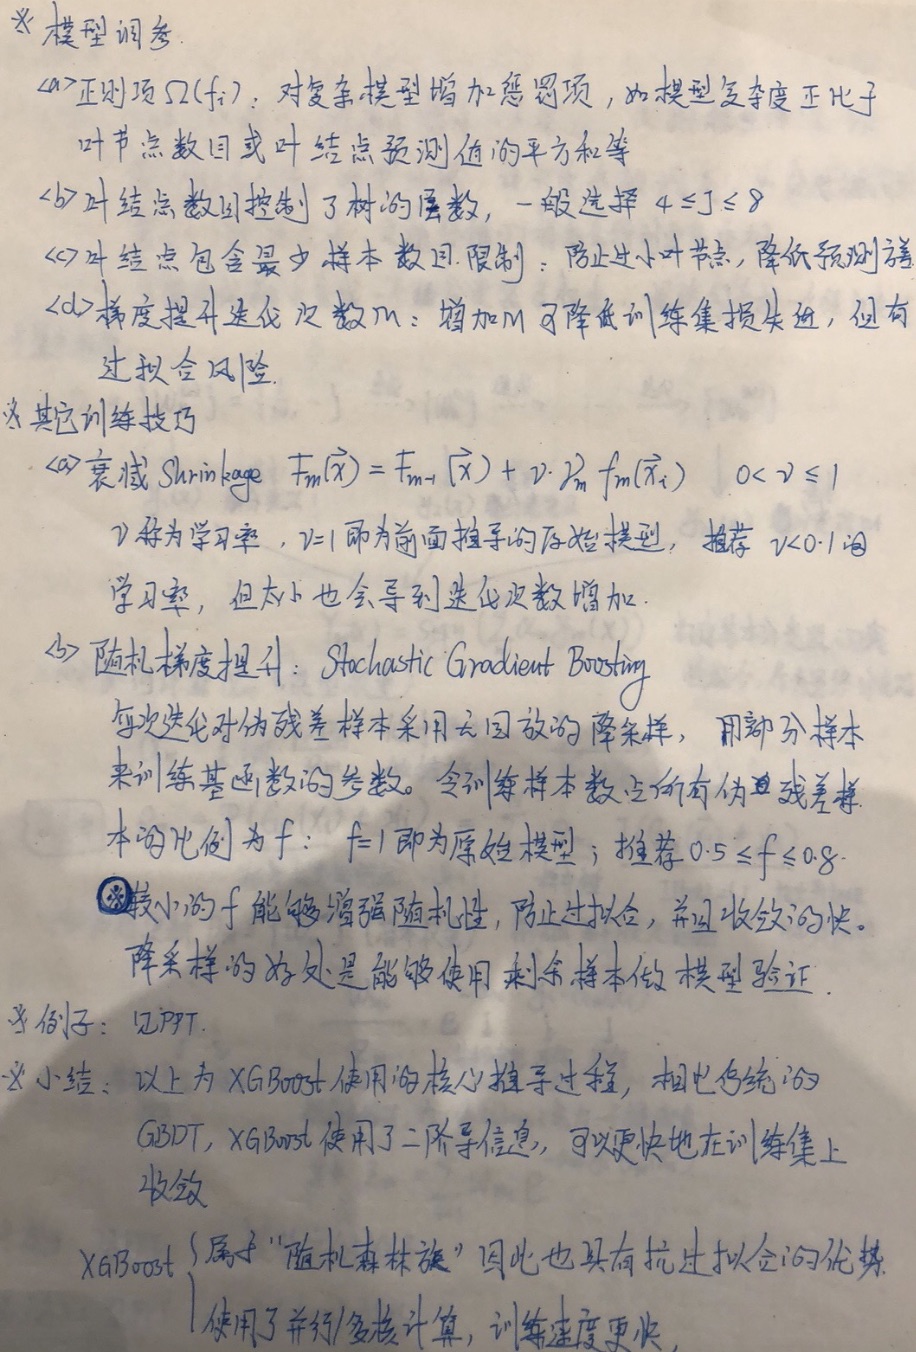 ※ 模型调参.
<a> 正则项Ω(fᵢ): 对复杂模型增加惩罚项, 如模型复杂度正比于
叶节点数目或叶结点预测值的平方和等
<b> 叶结点数目控制了树的层数, 一般选择 4≤J≤8
<c> 叶结点包含最少样本数目限制: 防止过小叶节点, 降低预测方差
<d> 梯度提升迭代次数m: 增加m可降低训练集损失值, 但有
过拟合风险.
※ 其它训练技巧
<a> 衰减 Shrinkage Fm(x⃗) = Fm-1(x⃗) + ν·γm fm(x⃗ᵢ) 0<ν≤1
ν称为学习率, ν=1即为前面推导的原始模型, 推荐 ν<0.1的
学习率, 但太小也会导到迭代次数增加.
<b> 随机梯度提升: Stochastic Gradient Boosting
每次迭代对伪残差样本采用无回放的降采样, 用部分样本
来训练基函数的参数。令训练样本数占所有伪残差样
本的比例为f: f=1即为原始模型; 推荐0.5≤f≤0.8.
※ 较小的f能够增强随机性, 防止过拟合, 并且收敛的快。
降采样的好处是能够使用剩余样本做模型验证.
※ 例子: 见PPT.
※ 小结: 以上为XGBoost使用的核心推导过程, 相比传统的
GBDT, XGBoost使用了二阶导信息, 可以更快地在训练集上
收敛
XGBoost { 属于“随机森林族”因此也具有抗过拟合的优势.
使用了并行/多核计算, 训练速度更快.